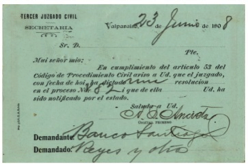 TERCER JUZGADO CIVIL
SECRETARIA
Valparaíso, 23 Junio de 1908
Sr. D.
Pte.
Mui señor mio:
En cumplimiento del artículo 53 del
Código de Procedimiento Civil aviso a Ud. que el juzgado,
con fecha de hoi ha dictado una resolucion
en el proceso N.° 82 que de ella Ud. ha
sido notificado por el estado.
Saluda a Ud.
Demandante: Banco Santiago
Demandado: Reyes y otro